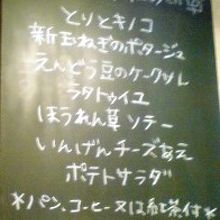 とりとキノコ
新玉ねぎのポタージュ
えんどう豆のケークサレ
ラタトゥイユ
ほうれん草ソテー
いんげんチーズあえ
ポテトサラダ
*パン、コーヒー又は紅茶付*